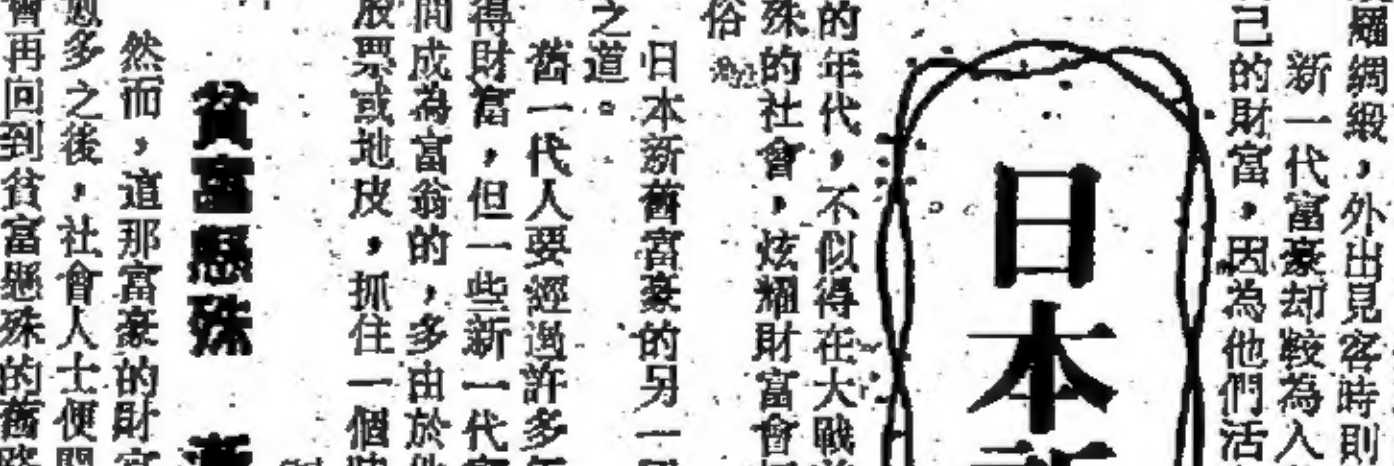 綢緞，外出見客時則
新一代富豪却較為入
己的財富，因為他們活
日本
的年代，不似得在大戰
殊的社會，炫耀財富會
俗
日本新舊富豪的另一
之道。
舊一代人要經過許多
得財富，但一些新一代
間成為富翁的，多由於
股票或地皮，抓住一個
貧富懸殊
然而，這那富豪的財富
愈多之後，社會人士便
會再回到貧富懸殊的舊路